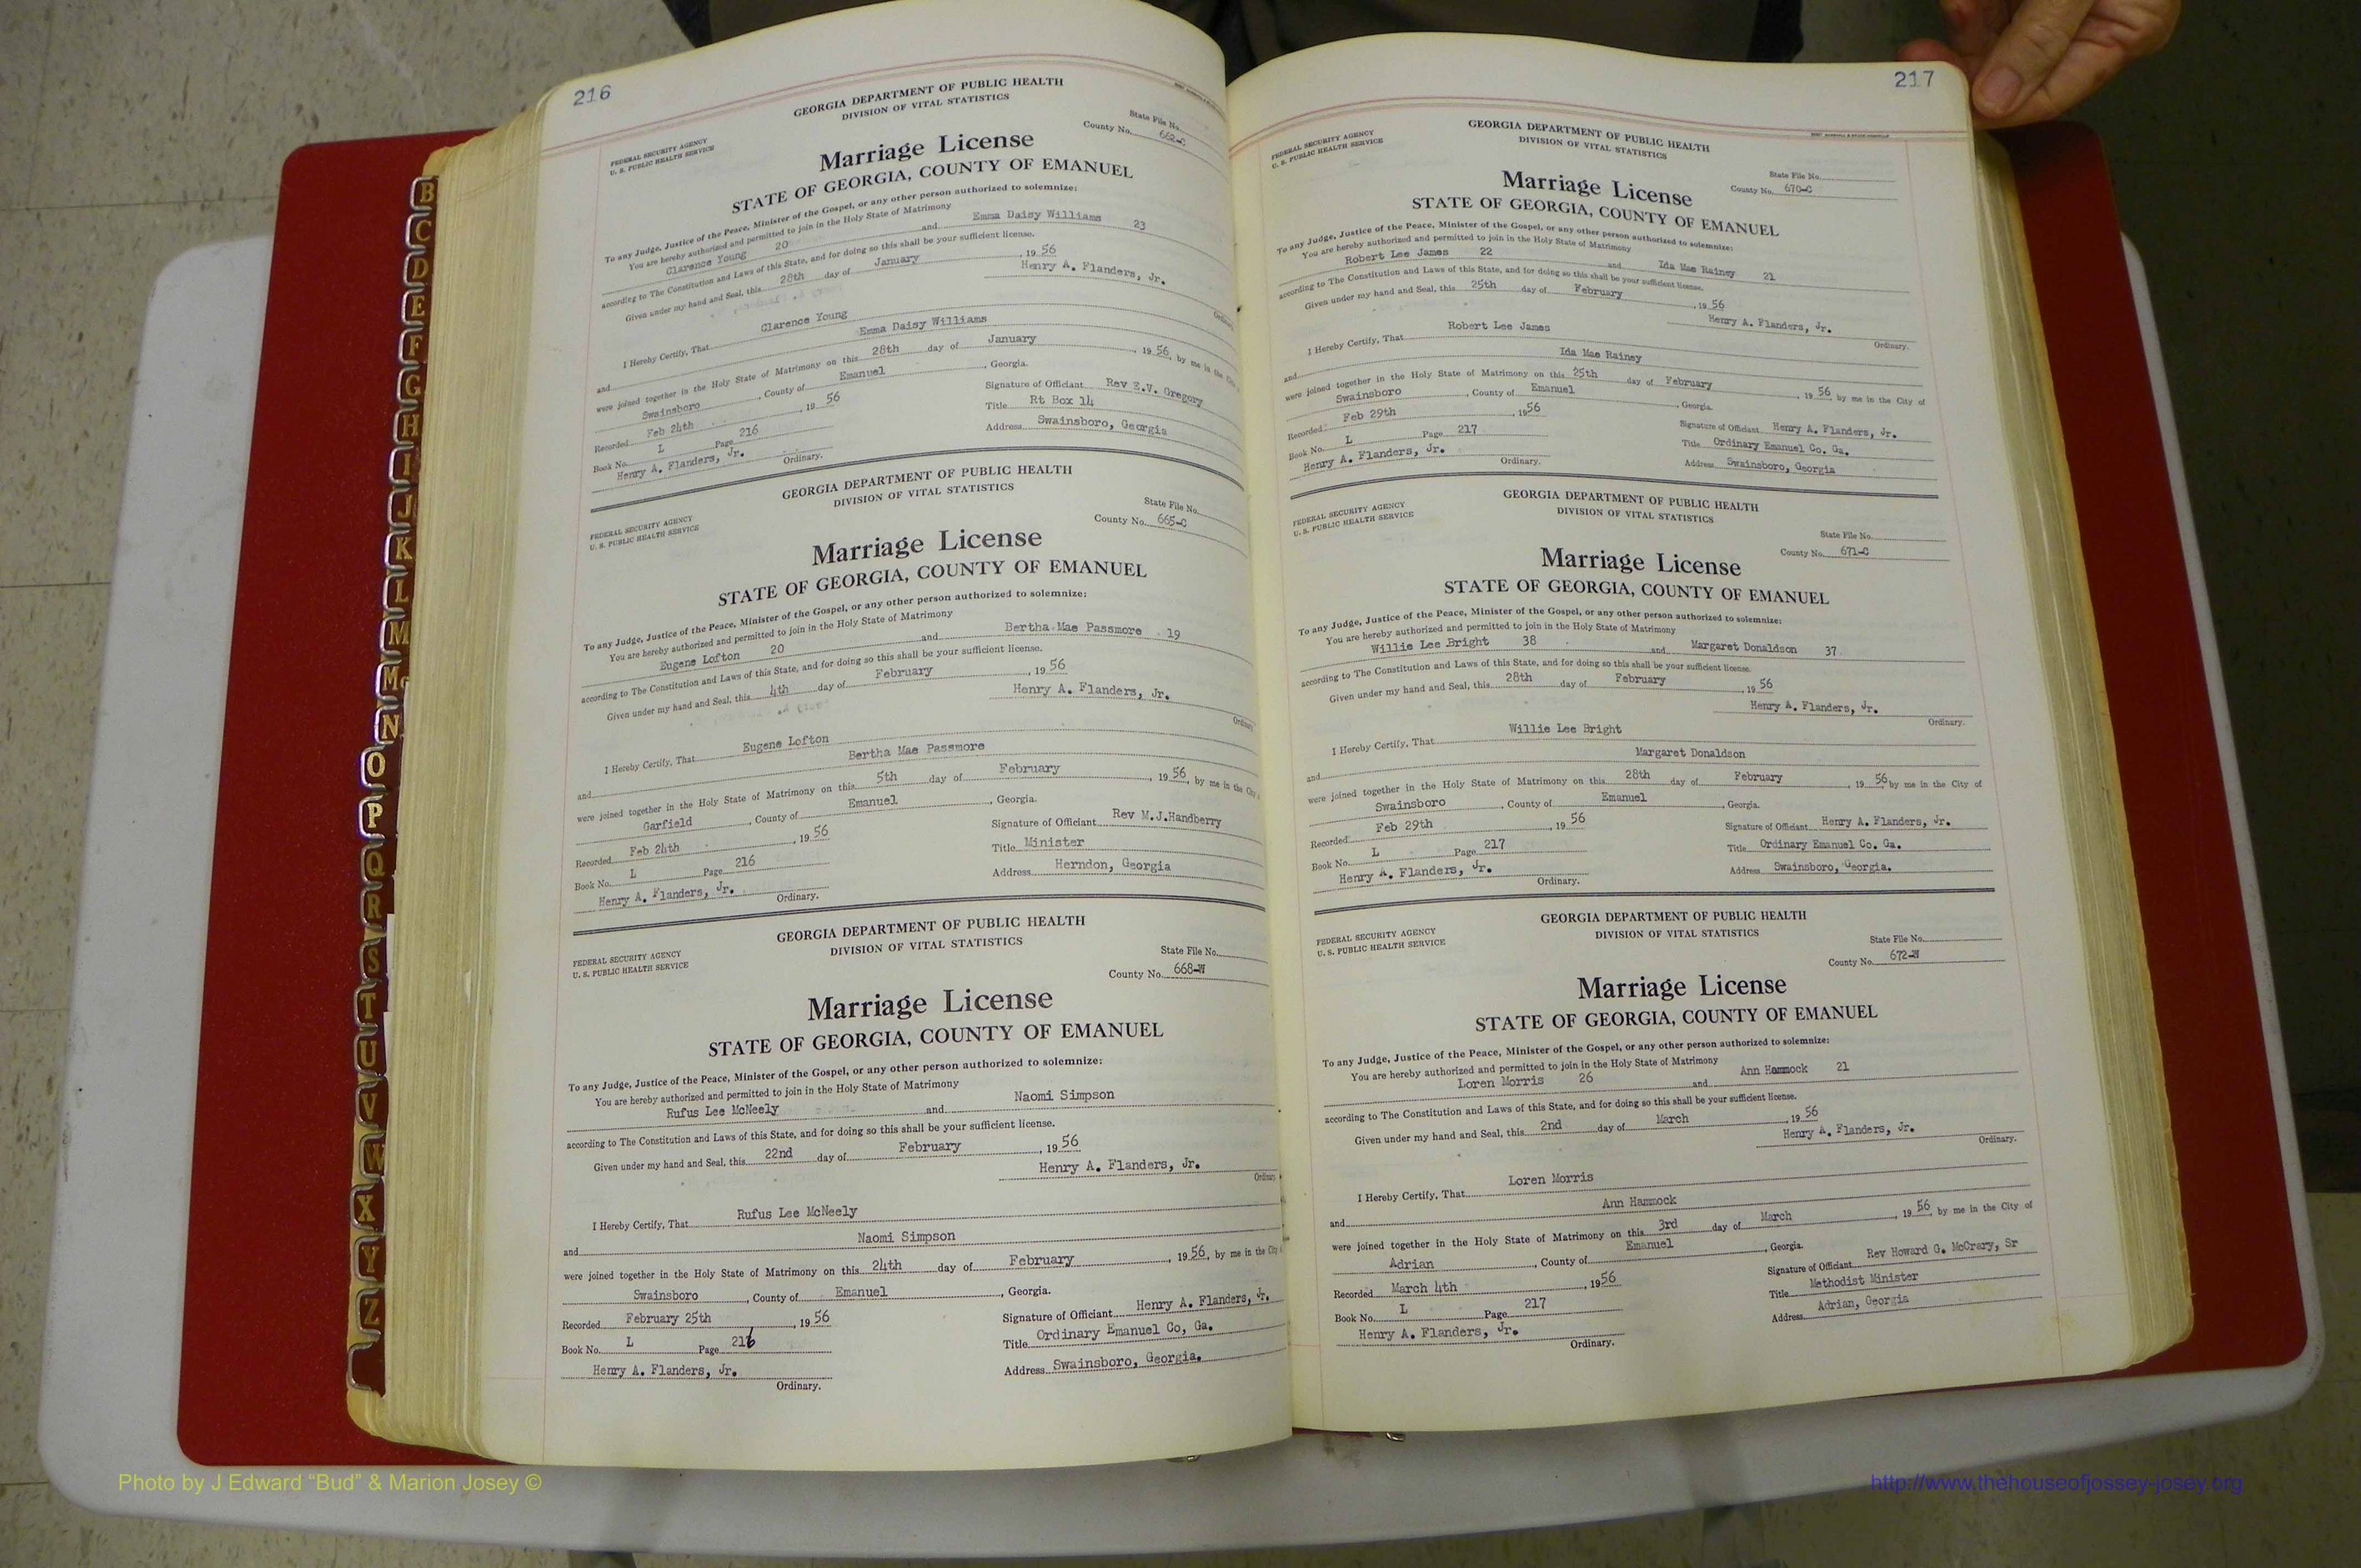 216
GEORGIA DEPARTMENT OF PUBLIC HEALTH
DIVISION OF VITAL STATISTICS
FEDERAL SECURITY AGENCY
U. S. PUBLIC HEALTH SERVICE
State File No.
County No. 662-C
Marriage License
STATE OF GEORGIA, COUNTY OF EMANUEL
To any Judge, Justice of the Peace, Minister of the Gospel, or any other person authorized to solemnize:
You are hereby authorized and permitted to join in the Holy State of Matrimony
Clarence Young 20 and Emma Daisy Williams 23
according to The Constitution and Laws of this State, and for doing so this shall be your sufficient license.
Given under my hand and Seal, this 28th day of January, 19 56
Henry A. Flanders, Jr.
Ordinary
I Hereby Certify, That Clarence Young
and Emma Daisy Williams
were joined together in the Holy State of Matrimony on this 28th day of January, 19 56, by me in the City
Swainsboro, County of Emanuel, Georgia.
Recorded Feb 24th, 19 56
Signature of Officiant Rev E.V. Gregory
Book No. L Page 216
Title Rt Box 14
Henry A. Flanders, Jr. Ordinary.
Address Swainsboro, Georgia
GEORGIA DEPARTMENT OF PUBLIC HEALTH
DIVISION OF VITAL STATISTICS
FEDERAL SECURITY AGENCY
U. S. PUBLIC HEALTH SERVICE
State File No.
County No. 665-C
Marriage License
STATE OF GEORGIA, COUNTY OF EMANUEL
To any Judge, Justice of the Peace, Minister of the Gospel, or any other person authorized to solemnize:
You are hereby authorized and permitted to join in the Holy State of Matrimony
Eugene Lofton 20 and Bertha Mae Passmore 19
according to The Constitution and Laws of this State, and for doing so this shall be your sufficient license.
Given under my hand and Seal, this 4th day of February, 19 56
Henry A. Flanders, Jr.
Ordinary
I Hereby Certify, That Eugene Lofton
and Bertha Mae Passmore
were joined together in the Holy State of Matrimony on this 5th day of February, 19 56, by me in the City
Garfield, County of Emanuel, Georgia.
Recorded Feb 24th, 19 56
Signature of Officiant Rev M.J.Handberry
Book No. L Page 216
Title Minister
Henry A. Flanders, Jr. Ordinary.
Address Herndon, Georgia
GEORGIA DEPARTMENT OF PUBLIC HEALTH
DIVISION OF VITAL STATISTICS
FEDERAL SECURITY AGENCY
U. S. PUBLIC HEALTH SERVICE
State File No.
County No. 668-W
Marriage License
STATE OF GEORGIA, COUNTY OF EMANUEL
To any Judge, Justice of the Peace, Minister of the Gospel, or any other person authorized to solemnize:
You are hereby authorized and permitted to join in the Holy State of Matrimony
Rufus Lee McNeely and Naomi Simpson
according to The Constitution and Laws of this State, and for doing so this shall be your sufficient license.
Given under my hand and Seal, this 22nd day of February, 19 56
Henry A. Flanders, Jr.
Ordinary
I Hereby Certify, That Rufus Lee McNeely
and Naomi Simpson
were joined together in the Holy State of Matrimony on this 24th day of February, 19 56, by me in the City
Swainsboro, County of Emanuel, Georgia.
Recorded February 25th, 19 56
Signature of Officiant Henry A. Flanders, Jr.
Book No. L Page 216
Title Ordinary Emanuel Co, Ga.
Henry A. Flanders, Jr.
Ordinary.
Address Swainsboro, Georgia.
217
GEORGIA DEPARTMENT OF PUBLIC HEALTH
DIVISION OF VITAL STATISTICS
FEDERAL SECURITY AGENCY
U. S. PUBLIC HEALTH SERVICE
State File No.
County No. 670-C
Marriage License
STATE OF GEORGIA, COUNTY OF EMANUEL
To any Judge, Justice of the Peace, Minister of the Gospel, or any other person authorized to solemnize:
You are hereby authorized and permitted to join in the Holy State of Matrimony
Robert Lee James 22 and Ida Mae Rainey 21
according to The Constitution and Laws of this State, and for doing so this shall be your sufficient license.
Given under my hand and Seal, this 25th day of February, 19 56
Henry A. Flanders, Jr.
Ordinary.
I Hereby Certify, That Robert Lee James
and Ida Mae Rainey
were joined together in the Holy State of Matrimony on this 25th day of February, 19 56 by me in the City of
Swainsboro, County of Emanuel, Georgia.
Recorded Feb 29th, 19 56
Signature of Officiant Henry A. Flanders, Jr.
Book No. L Page 217
Title Ordinary Emanuel Co. Ga.
Henry A. Flanders, Jr. Ordinary.
Address Swainsboro, Georgia
GEORGIA DEPARTMENT OF PUBLIC HEALTH
DIVISION OF VITAL STATISTICS
FEDERAL SECURITY AGENCY
U. S. PUBLIC HEALTH SERVICE
State File No.
County No. 671-C
Marriage License
STATE OF GEORGIA, COUNTY OF EMANUEL
To any Judge, Justice of the Peace, Minister of the Gospel, or any other person authorized to solemnize:
You are hereby authorized and permitted to join in the Holy State of Matrimony
Willie Lee Bright 38 and Margaret Donaldson 37
according to The Constitution and Laws of this State, and for doing so this shall be your sufficient license.
Given under my hand and Seal, this 28th day of February, 19 56
Henry A. Flanders, Jr.
Ordinary.
I Hereby Certify, That Willie Lee Bright
and Margaret Donaldson
were joined together in the Holy State of Matrimony on this 28th day of February, 19 56 by me in the City of
Swainsboro, County of Emanuel, Georgia.
Recorded Feb 29th, 19 56
Signature of Officiant Henry A. Flanders, Jr.
Book No. L Page 217
Title Ordinary Emanuel Co. Ga.
Henry A. Flanders, Jr. Ordinary.
Address Swainsboro, Georgia.
GEORGIA DEPARTMENT OF PUBLIC HEALTH
DIVISION OF VITAL STATISTICS
FEDERAL SECURITY AGENCY
U. S. PUBLIC HEALTH SERVICE
State File No.
County No. 672-W
Marriage License
STATE OF GEORGIA, COUNTY OF EMANUEL
To any Judge, Justice of the Peace, Minister of the Gospel, or any other person authorized to solemnize:
You are hereby authorized and permitted to join in the Holy State of Matrimony
Loren Morris 26 and Ann Hammock 21
according to The Constitution and Laws of this State, and for doing so this shall be your sufficient license.
Given under my hand and Seal, this 2nd day of March, 19 56
Henry A. Flanders, Jr.
Ordinary.
I Hereby Certify, That Loren Morris
and Ann Hammock
were joined together in the Holy State of Matrimony on this 3rd day of March, 19 56, by me in the City of
Adrian, County of Emanuel, Georgia.
Recorded March 4th, 19 56
Signature of Officiant Rev Howard G. McCrary, Sr
Book No. L Page 217
Title Methodist Minister
Henry A. Flanders, Jr.
Ordinary.
Address Adrian, Georgia
B
C
D
E
F
G
H
I
J
K
L
M
Mc
N
O
P
Q
R
S
T
U
V
W
X
Y
Z
Photo by J Edward “Bud” & Marion Josey ©
http://www.thehouseofjossey-josey.org